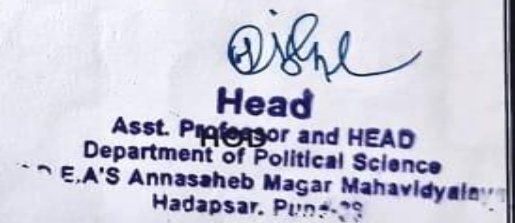 Head
Asst. Professor and HEAD
HOD
Department of Political Science
E.A'S Annasaheb Magar Mahavidyalaya
Hadapsar. Pune-28